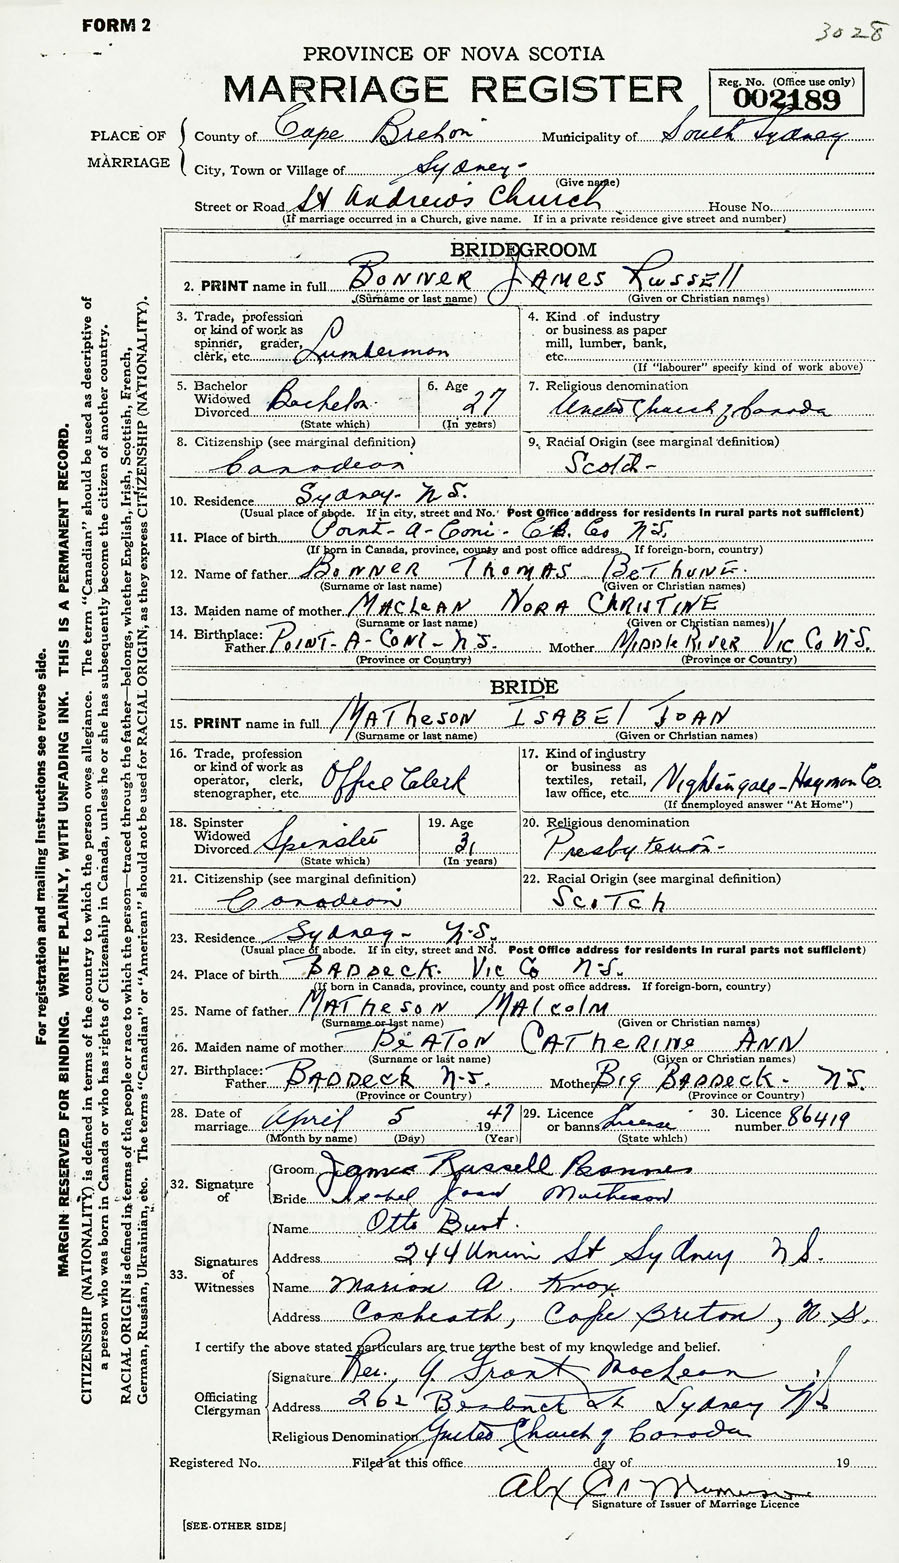 FORM 2
3028
PROVINCE OF NOVA SCOTIA
MARRIAGE REGISTER
Reg. No. (Office use only)
002189
PLACE OF MARRIAGE
County of Cape Breton Municipality of South Sydney
City, Town or Village of Sydney-
(Give name)
Street or Road St Andrew's Church House No.
(If marriage occurred in a Church, give name. If in a private residence give street and number)
BRIDEGROOM
2. PRINT name in full BONNER JAMES RUSSELL
(Surname or last name) (Given or Christian names)
3. Trade, profession or kind of work as spinner, grader, clerk, etc. Lumberman
4. Kind of industry or business as paper mill, lumber, bank, etc.
(If "labourer" specify kind of work above)
5. Bachelor Widowed Divorced Bachelor
(State which)
6. Age 27
(In years)
7. Religious denomination
United Church of Canada
8. Citizenship (see marginal definition)
Canadian
9. Racial Origin (see marginal definition)
Scotch-
10. Residence Sydney- N.S.
(Usual place of abode. If in city, street and No. Post Office address for residents in rural parts not sufficient)
11. Place of birth Point-A-Coni- C.B. Co N.S.
(If born in Canada, province, county and post office address. If foreign-born, country)
12. Name of father BONNER THOMAS BETHUNE.
(Surname or last name) (Given or Christian names)
13. Maiden name of mother MACLEAN NORA CHRISTINE
(Surname or last name) (Given or Christian names)
14. Birthplace: Father POINT-A-CONI-N.S. Mother MIDDLE RIVER VIC CO N.S.
(Province or Country) (Province or Country)
BRIDE
15. PRINT name in full MATHESON ISABEL JOAN
(Surname or last name) (Given or Christian names)
16. Trade, profession or kind of work as operator, clerk, stenographer, etc. Office Clerk
17. Kind of industry or business as textiles, retail, law office, etc. Nightingale-Hayman Co.
(If unemployed answer "At Home")
18. Spinster Widowed Divorced Spinster
(State which)
19. Age 31
(In years)
20. Religious denomination
Presbyterian-
21. Citizenship (see marginal definition)
Canadian
22. Racial Origin (see marginal definition)
SCOTCH
23. Residence Sydney- N.S.
(Usual place of abode. If in city, street and No. Post Office address for residents in rural parts not sufficient)
24. Place of birth BADDECK. VIC CO N.S.
(If born in Canada, province, county and post office address. If foreign-born, country)
25. Name of father MATHESON MALCOLM
(Surname or last name) (Given or Christian names)
26. Maiden name of mother BEATON CATHERINE ANN
(Surname or last name) (Given or Christian names)
27. Birthplace: Father BADDECK N.S. Mother BIG BADDECK- N.S.
(Province or Country) (Province or Country)
28. Date of marriage April 5 1947
(Month by name) (Day) (Year)
29. Licence or banns License
(State which)
30. Licence number 86419
32. Signature of
Groom James Russell Bonner
Bride Isabel Joan Matheson
33. Signatures of Witnesses
Name Otto Burt.
Address 244 Union St Sydney N S.
Name Marion A. Knox
Address Coxheath, Cape Breton, N S.
I certify the above stated particulars are true to the best of my knowledge and belief.
Officiating Clergyman
Signature Rev. Grant MacLean
Address 262 St Sydney NS
Religious Denomination United Church of Canada
Registered No. Filed at this office day of 19
Alx
Signature of Issuer of Marriage Licence
[SEE OTHER SIDE]
For registration and mailing instructions see reverse side.
MARGIN RESERVED FOR BINDING. WRITE PLAINLY, WITH UNFADING INK. THIS IS A PERMANENT RECORD.
CITIZENSHIP (NATIONALITY) is defined in terms of the country to which the person owes allegiance. The term "Canadian" should be used as descriptive of
a person who was born in Canada or who has rights of Citizenship in Canada, unless he or she has subsequently become the citizen of another country.
RACIAL ORIGIN is defined in terms of the people or race to which the person—traced through the father—belongs, whether English, Irish, Scottish, French,
German, Russian, Ukrainian, etc. The terms "Canadian" or "American" should not be used for RACIAL ORIGIN, as they express CITIZENSHIP (NATIONALITY).